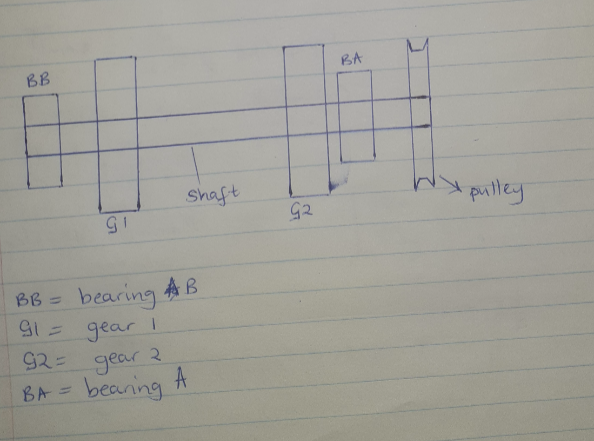 BB
BA
shaft
pulley
G1
G2
BB = bearing B
G1 = gear 1
G2 = gear 2
BA = bearing A